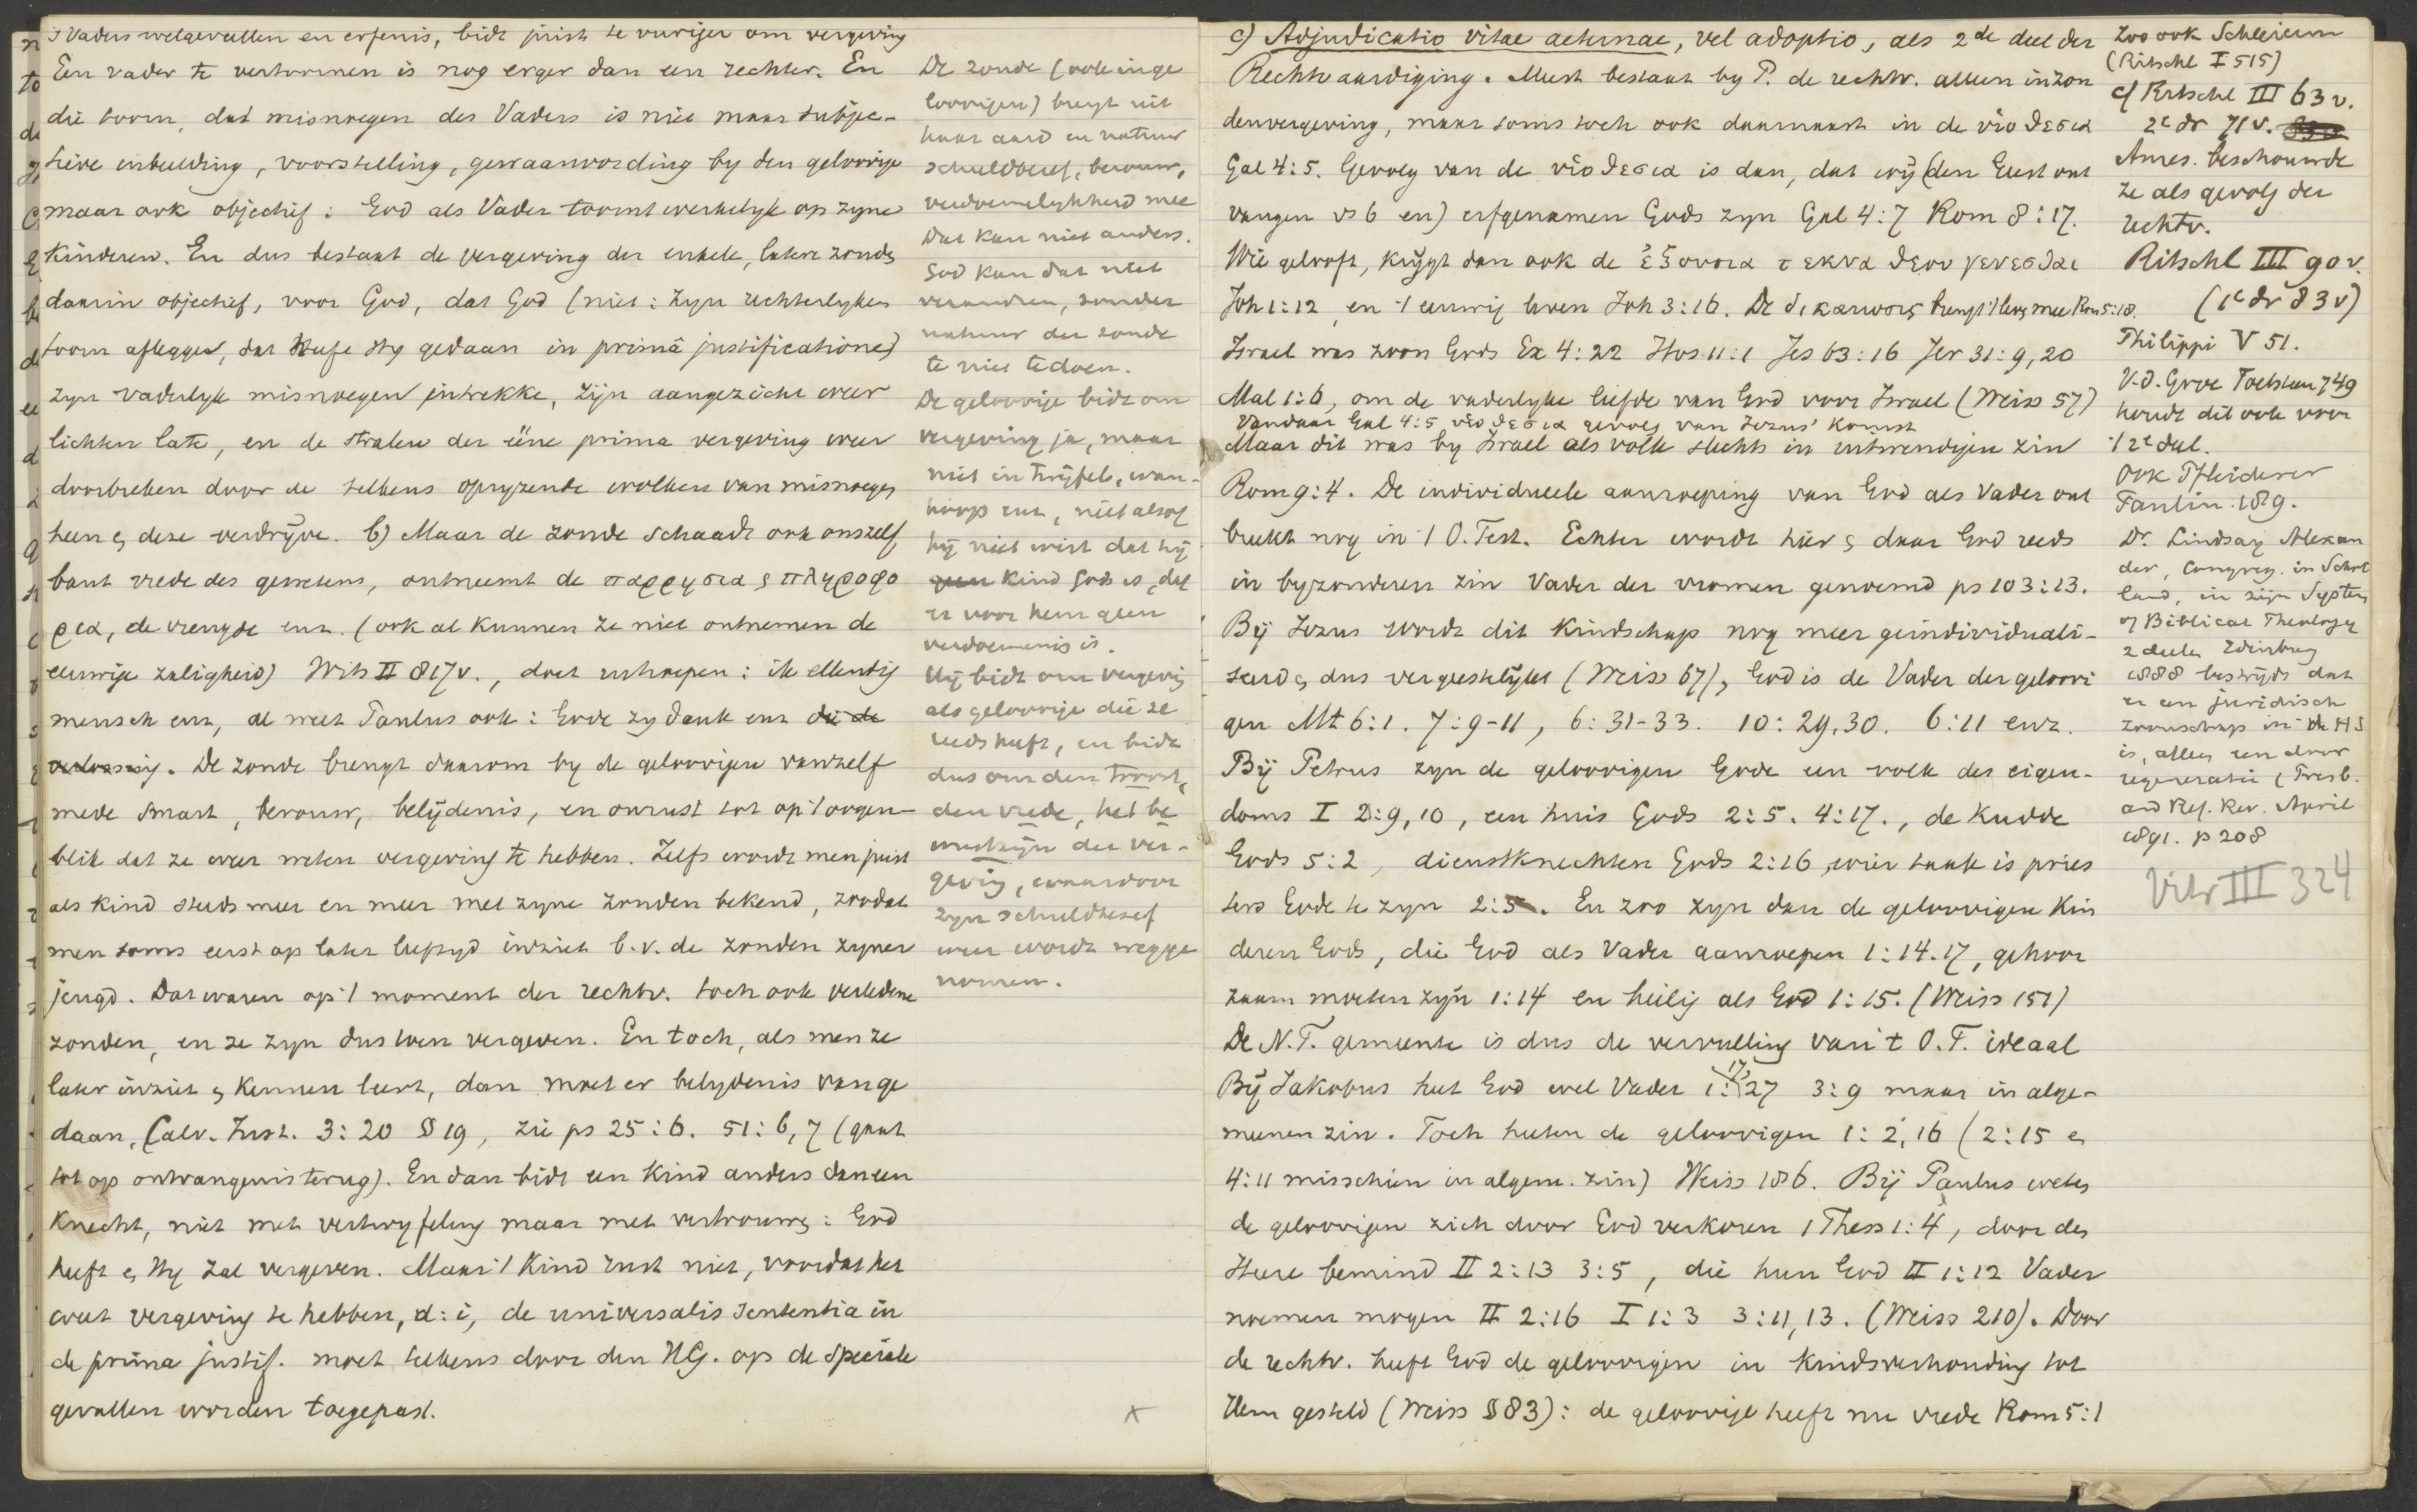 's Vaders welgevallen en erfenis, bidt juist te vuriger om vergeving
Een vader te vertoornen is nog erger dan een rechter. En
die toorn, dat misnoegen des Vaders is niet maar subjec-
tieve inbeelding, voorstelling, gewaarwording by den geloovige
maar ook objectief: God als Vader toornt werkelyk op zyne
kinderen. En dus bestaat de vergeving der enkele, latere zonden
daarin objectief, voor God, dat God (niet: zyn rechterlyken
toorn aflegge, dat heeft Hy gedaan in primâ justificatione)
zyn vaderlyk misnoegen intrekke, zijn aangezicht weer
lichten late, en de stralen der ééne prima vergeving weer
doorbreken door de telkens opryzende wolken van misnoegen
heen en deze verdrijve. b) Maar de zonde schaadt ook onszelf
bant vrede des gewetens, ontneemt de παρρησια ς πληροφο
ρια, de vreugde enz. (ook al kunnen ze niet ontnemen de
eeuwige zaligheid) Wits II 817v., doet uitroepen: ik ellendig
mensch enz, al weet Paulus ook: Gode zy dank enz die de
verlossing. De zonde brengt daarom by de geloovigen vanzelf
mede smart, berouw, belijdenis, en onrust tot op 't oogen-
blik dat ze weer weten vergeving te hebben. Zelfs wordt men juist
als kind steeds meer en meer met zyne zonden bekend, zoodat
men soms eerst op later leeftyd inziet b.v. de zonden zyner
jeugd. Dat waren op 't moment der rechtv. toch ook verledene
zonden, en ze zyn dus toen vergeven. En toch, als men ze
later inziet en kennen leert, dan moet er belydenis van ge
daan, Calv. Inst. 3:20 § 19, zie ps 25:6. 51:6,7 (gaat
tot op ontvangenis terug). En dan bidt een kind anders dan een
knecht, niet met vertwyfeling maar met vertrouwen: God
heeft en Hy zal vergeven. Maar 't kind rust niet, voordat het
weet vergeving te hebben, d:i, de universalis sententia in
de prima justif. moet telkens door den HG. op de speciale
gevallen worden toegepast.
De zonde (ook in ge
loovigen) brengt uit
haar aard en natuur
schuldbesef, berouw,
verdoemelykheid mee
Dat kan niet anders.
God kan dat niet
veranderen, zonder
natuur der zonde
te niet te doen.
De geloovige bidt om
vergeving ja, maar
niet in twijfel, wan-
hoop enz, niet alsof
hij niet wist dat hij
geen kind Gods is, dat
er voor hem geen
verdoemenis is.
Hij bidt om vergeving
als geloovige die ze
reeds heeft, en bidt
dus om den troost,
den vrede, het be
wustzijn der ver-
geving, waardoor
zyn schuldbesef
weer wordt wegge
nomen.
c) Adjudicatio vitae aeternae, vel adoptio, als 2de deel der
Rechtvaardiging. Meest bestaat by P. de rechtv. alleen in zon
denvergeving, maar soms toch ook daarnaast in de υἱοθεσια
Gal 4:5. Gevolg van de υἱοθεσια is dan, dat wij (den Geest ont
vangen vs 6 en) erfgenamen Gods zyn Gal 4:7 Rom 8:17.
Wie gelooft, krijgt dan ook de ἐξουσια τεκνα θεου γενεσθαι
Joh 1:12, en 't eeuwig leven Joh 3:16. De δικαιωσις brengt 't leven mee Rom 5:18.
Israel was zoon Gods Ex 4:22 Hos. 11:1 Jes 63:16 Jer 31:9,20
Mal 1:6, om de vaderlyke liefde van God voor Israel (Weiss 57)
Vandaar Gal 4:5 υἱοθεσια gevolg van Jezus' komst
Maar dit was by Israel als volk slechts in uitwendigen zin
Rom 9:4. De individueele aanroeping van God als Vader ont
breekt nog in 't O. Test. Echter wordt hier en daar God reeds
in byzonderen zin Vader der vromen genoemd ps 103:13.
Bij Jezus wordt dit kindschap nog meer geindividuali-
seerd en dus vergeestelijkt (Weiss 67), God is de Vader der geloovi
gen Mt 6:1. 7:9-11, 6:31-33. 10:29,30. 6:11 enz.
Bij Petrus zyn de geloovigen Gode een volk des eigen-
doms I 2:9,10, een huis Gods 2:5. 4:17., de kudde
Gods 5:2, dienstknechten Gods 2:16, wier taak is pries
ters Gode te zyn 2:5. En zoo zyn dan de geloovigen kin
deren Gods, die God als Vader aanroepen 1:14.17, gehoor
zaam moeten zyn 1:14 en heilig als God 1:15. (Weiss 151)
De N.T. gemeente is dus de vervulling van 't O.T. ideaal
Bij Jakobus heet God wel Vader 1:17,27 3:9 maar in alge-
meenen zin. Toch heeten de geloovigen 1:2,16 (2:15 en
4:11 misschien in algem. zin) Weiss 186. Bij Paulus weten
de geloovigen zich door God verkoren 1 Thess 1:4, door den
Heere bemind II 2:13 3:5, die hun God II 1:12 Vader
noemen mogen II 2:16 I 1:3 3:11,13. (Weiss 210). Door
de rechtv. heeft God de geloovigen in kindsverhouding tot
Hem gesteld (Weiss § 83): de geloovige heeft nu vrede Rom 5:1
Zoo ook Schleierm
(Ritschl I 515)
cf Ritschl III 63 v.
2e dr 71v.
Ames. beschouwde
ze als gevolg der
rechtv.
Ritschl III 90 v.
(1e dr 83v)
Philippi V 51.
V.d. Groe Toetsteen 749
houdt dit ook voor
't 2e deel.
Ook Pfleiderer
Paulin. 189.
Dr. Lindsay Alexan
der, Congreg. in Schot
land, in zijn System
of Biblical Theology
2 deelen Edinburg
1888 bestrijdt dat
er een juridisch
zoonschap in de HS
is, alleen een door
regeneratie (Presb.
and Ref. Rev. April
1891. p 208
Vitr III 324